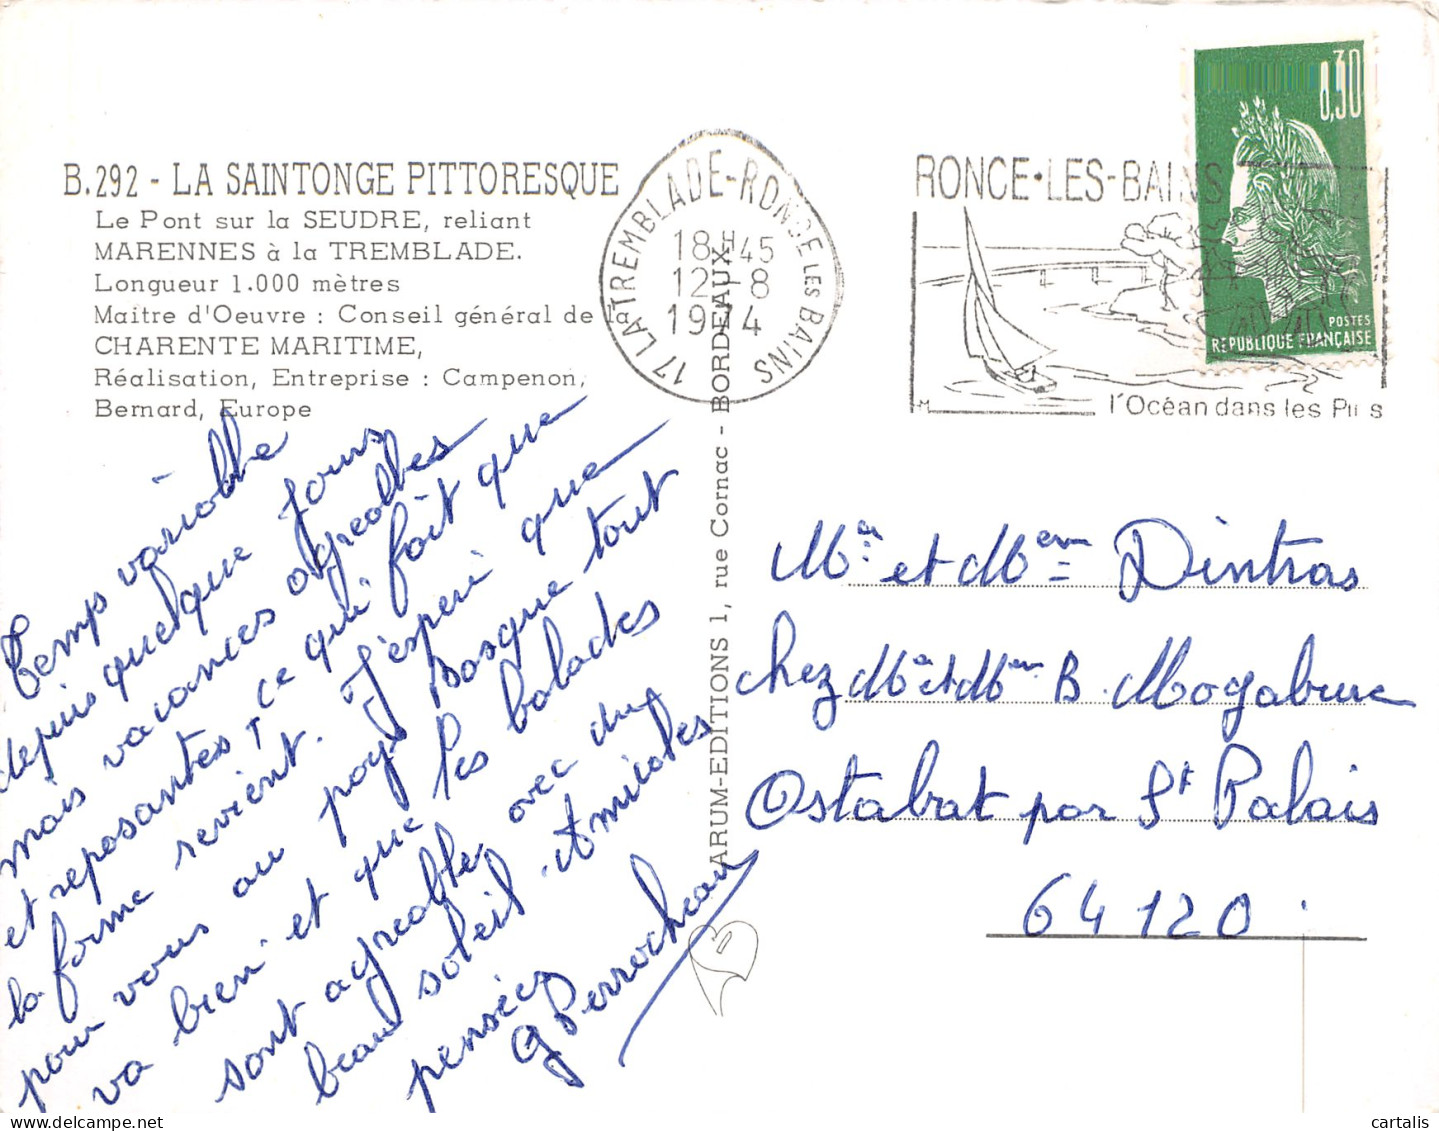 B.292 - LA SAINTONGE PITTORESQUE
Le Pont sur la SEUDRE, reliant
MARENNES à la TREMBLADE.
Longueur 1.000 mètres
Maitre d'Oeuvre : Conseil général de la
CHARENTE MARITIME,
Réalisation, Entreprise : Campenon,
Bernard, Europe
17 LA TREMBLADE-RONCE LES BAINS
18H45
12-8
1974
RONCE•LES-BAINS
l'Océan dans les Pins
M
0,30
POSTES
REPUBLIQUE FRANÇAISE
ARUM-EDITIONS 1, rue Cornac - BORDEAUX
Temps variable
depuis quelque jours
mais vacances agréables
et reposantes, ce qui fait que
la forme revient. J'espère que
pour vous au pays Basque tout
va bien et que les balades
sont agréables avec du
beau soleil. Amicales
pensées
G Perrocheau
Mr et Mem Dintras
chez Mr et Mem B. Mogabure
Ostabat par St Palais
64120
cartalis